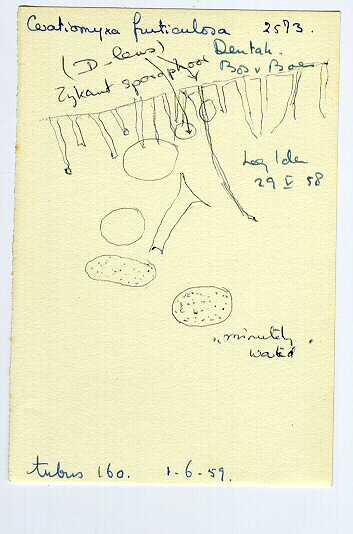 Ceratiomyxa fruticulosa 2573.
(D-lens) Dentah.
Zijkant sporophoor Bos v Baa
Leg Ida
29 V 58
"minutely
warted"
tubus 160. 1-6-59.